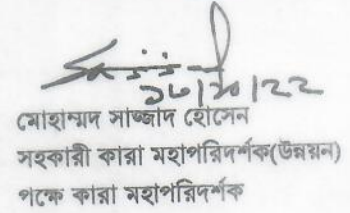 ১৬/১০/২২
মোহাম্মদ সাজ্জাদ হোসেন
সহকারী কারা মহাপরিদর্শক(উন্নয়ন)
পক্ষে কারা মহাপরিদর্শক